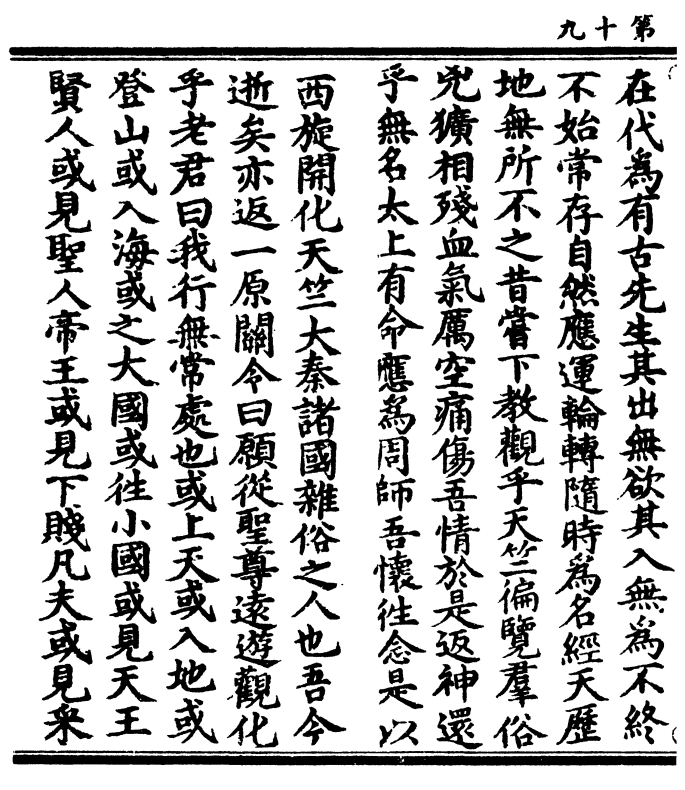 第十九
在代為有古先生其出無欲其入無為不終
不始常存自然應運輪轉隨時為名經天歷
地無所不之昔嘗下教觀乎天竺徧覽羣俗
兇獷相殘血氣厲空痛傷吾情於是返神還
乎無名太上有命應為周師吾懷往念是以
西旋開化天竺大秦諸國雜俗之人也吾今
逝矣亦返一原關令曰願從聖尊遠遊觀化
乎老君曰我行無常處也或上天或入地或
登山或入海或之大國或往小國或見天王
賢人或見聖人帝王或見下賤凡夫或見來